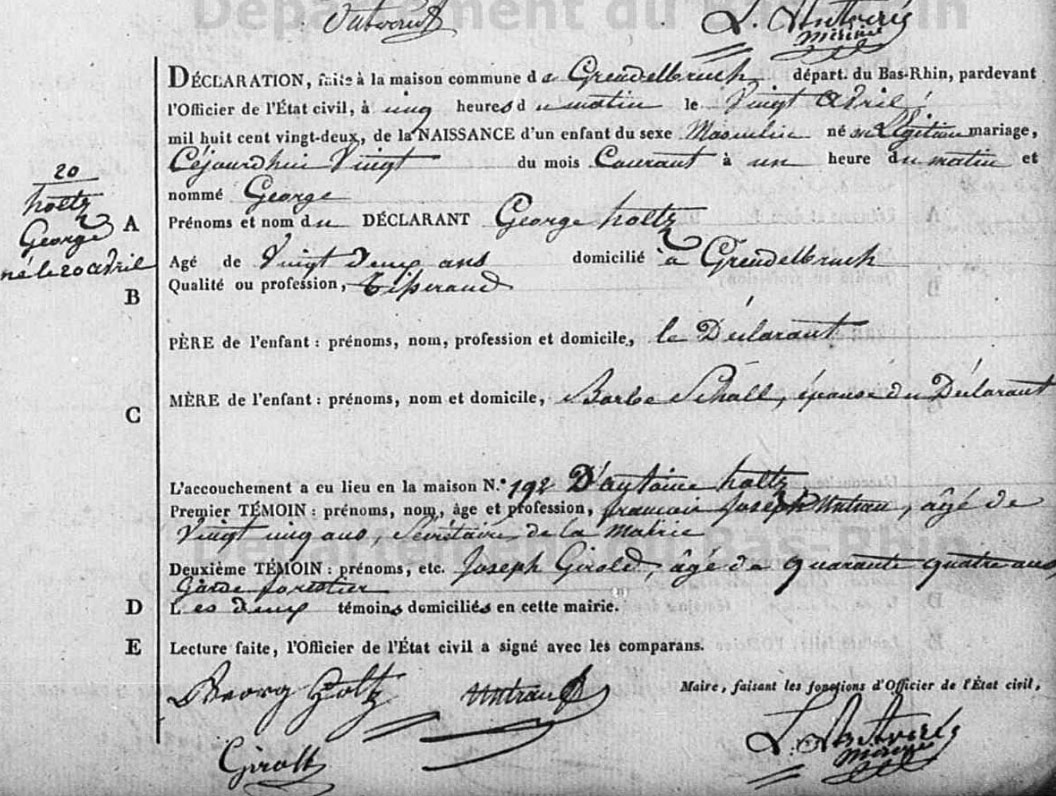 Département du Bas-Rhin
DÉCLARATION, faite à la maison commune de Grendelbruch, départ. du Bas-Rhin, pardevant
l'Officier de l'État civil, à cinq heures du matin le Vingt Avril,
mil huit cent vingt-deux, de la NAISSANCE d'un enfant du sexe Masculin né en Légitime mariage,
Cejourdhui Vingt du mois Courant à un heure du matin et
nommé George
20
holtz
George
né le 20 avril
A Prénoms et nom du DÉCLARANT George holtz
Agé de Vingt deux ans domicilié à Grendelbruch
B Qualité ou profession, Tisserand
PÈRE de l'enfant : prénoms, nom, profession et domicile, le Déclarant
C MÈRE de l'enfant : prénoms, nom et domicile, Barbe Schall, épouse du Déclarant
L'accouchement a eu lieu en la maison N.° 192 D'antoine holtz
Premier TÉMOIN : prénoms, nom, âge et profession, francois Joseph Untrau, âgé de
Vingt cinq ans, Secrétaire de la Mairie
Département du Bas-Rhin
Deuxième TÉMOIN : prénoms, etc. Joseph Girold, âgé de quarante quatre ans,
Garde forestier
D Les deux témoins domiciliés en cette mairie.
E Lecture faite, l'Officier de l'État civil a signé avec les comparans.
Georg Holtz Untrau
Maire, faisant les fonctions d'Officier de l'État civil,
Girolt